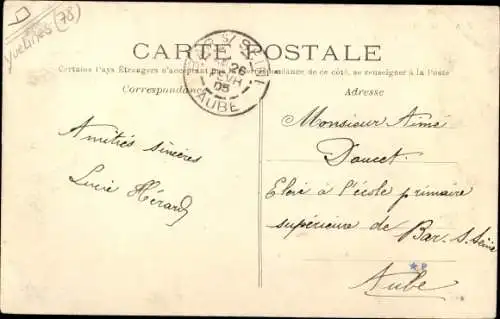 D
Yvelines (78)
CARTE POSTALE
Certains Pays Étrangers n'acceptant pas correspondance de ce côté, se renseigner à la Poste
Correspondance
Adresse
BAR S/ SEINE
26
FEVR
05
AUBE
Amitiés sincères
Lucie Hérard
Monsieur Aimé
Doucet
Elève à l'école primaire
supérieure de Bar. s. Seine
Aube